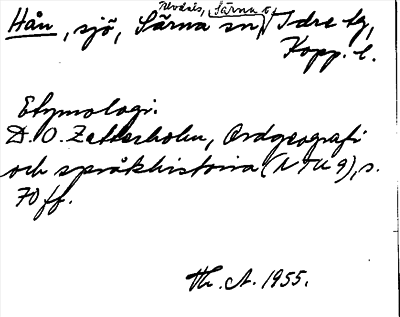 Älvdals, Särna o.
Hån, sjö, Särna sn, Idre tg,
Kopp. l.
Etymologi.
D. O. Zetterholm, Ordgeografi
och språkhistoria (NTU 9), s.
70 ff.
Th. A. 1955.